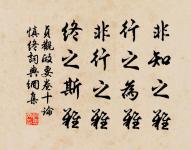 非知之難
行之為難
非行之難
終之斯難
貞觀政要卷十論
慎終詞典網集